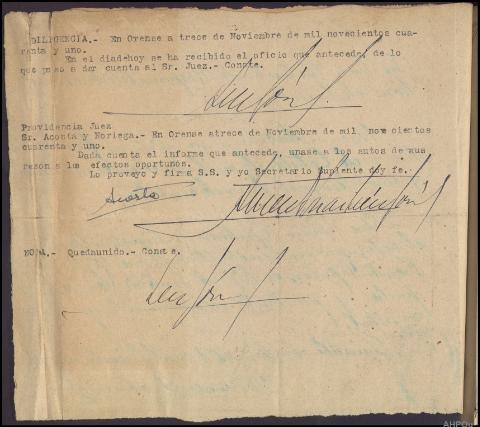 DILIGENCIA.- En Orense a trece de Noviembre de mil novecientos cua-
renta y uno.
En el diadehoy se ha recibido el oficio que antecede, de lo
que paso a dar cuenta al Sr. Juez.- Conste.
Providencia Juez
Sr. Acosta y Noriega.- En Orense atrece de Noviembre de mil novecientos
cuarenta y uno.
Dada cuenta el informe que antecede, unase a los autos de sus
razon a los efectos oportunos.
Lo proveyo y firma S.S. y yo Secretario Suplente doy fe.
Acosta
NOTA.- Quedaunido.- Conste.
AHPOu